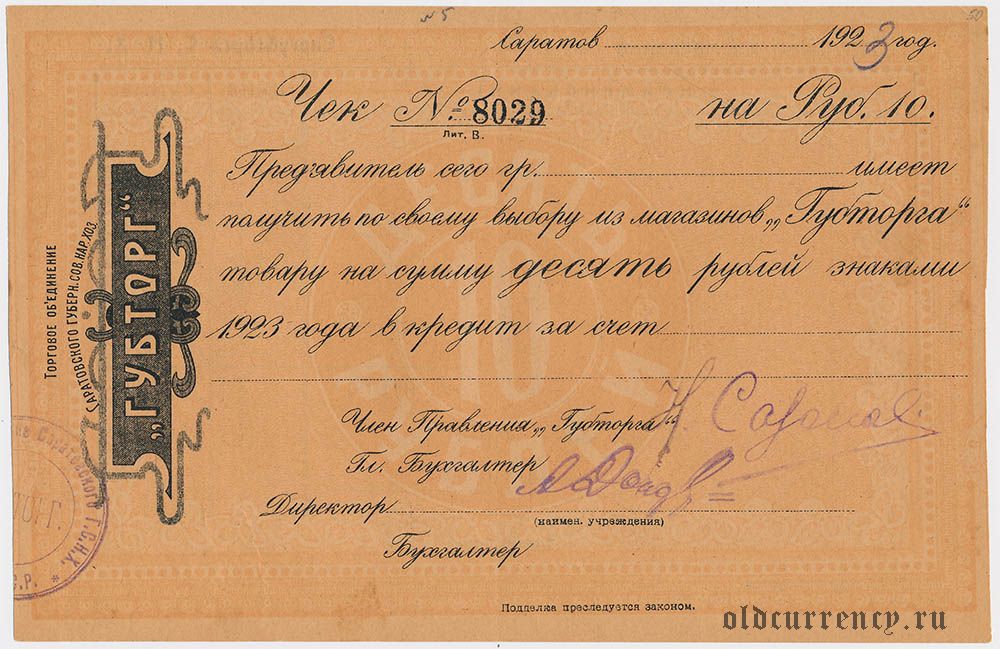 № 5
50
Саратов 1923 год.
Чек № 8029 на Руб. 10.
Лит. В.
Пред'явитель сего гр. имеет
получить по своему выбору из магазинов „Губторга“
товару на сумму десять рублей знаками
1923 года в кредит за счет
Член Правления „Губторга“
Гл. Бухгалтер
Директор
(наимен. учреждения)
Бухгалтер
Подделка преследуется законом.
ТОРГОВОЕ ОБ'ЕДИНЕНИЕ
САРАТОВСКОГО ГУБЕРН. СОВ. НАР. ХОЗ.
„ГУБТОРГ“
Саратовского Г.С.Н.Х.
10
oldcurrency.ru